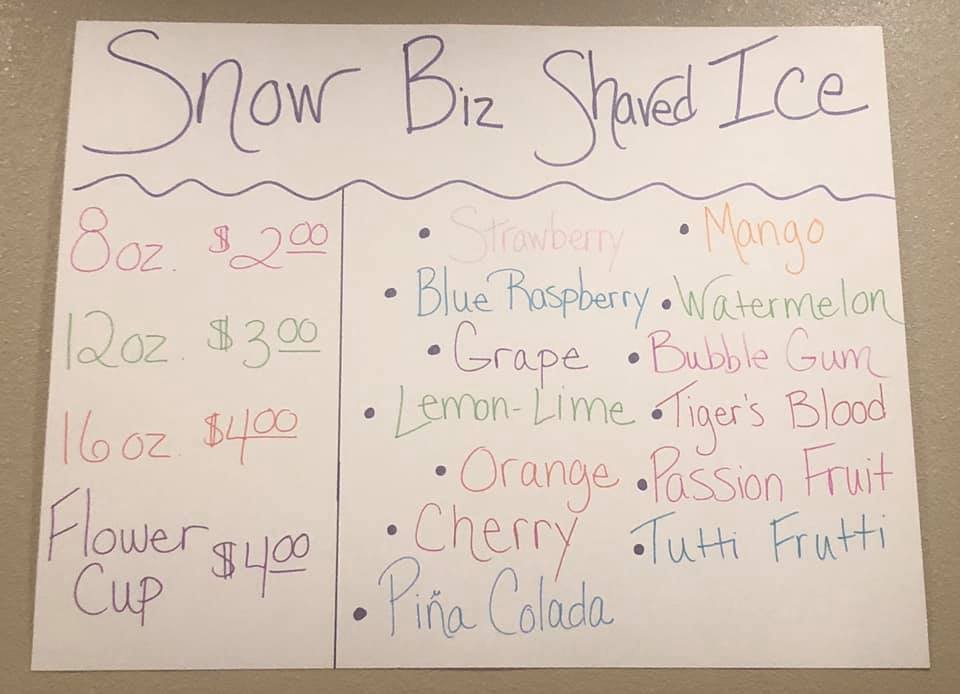 Snow Biz Shaved Ice
8oz. $2.00
12oz. $3.00
16oz. $4.00
Flower
Cup $4.00
• Strawberry
• Mango
• Blue Raspberry
• Watermelon
• Grape
• Bubble Gum
• Lemon-Lime
• Tiger's Blood
• Orange
• Passion Fruit
• Cherry
• Tutti Frutti
• Piña Colada